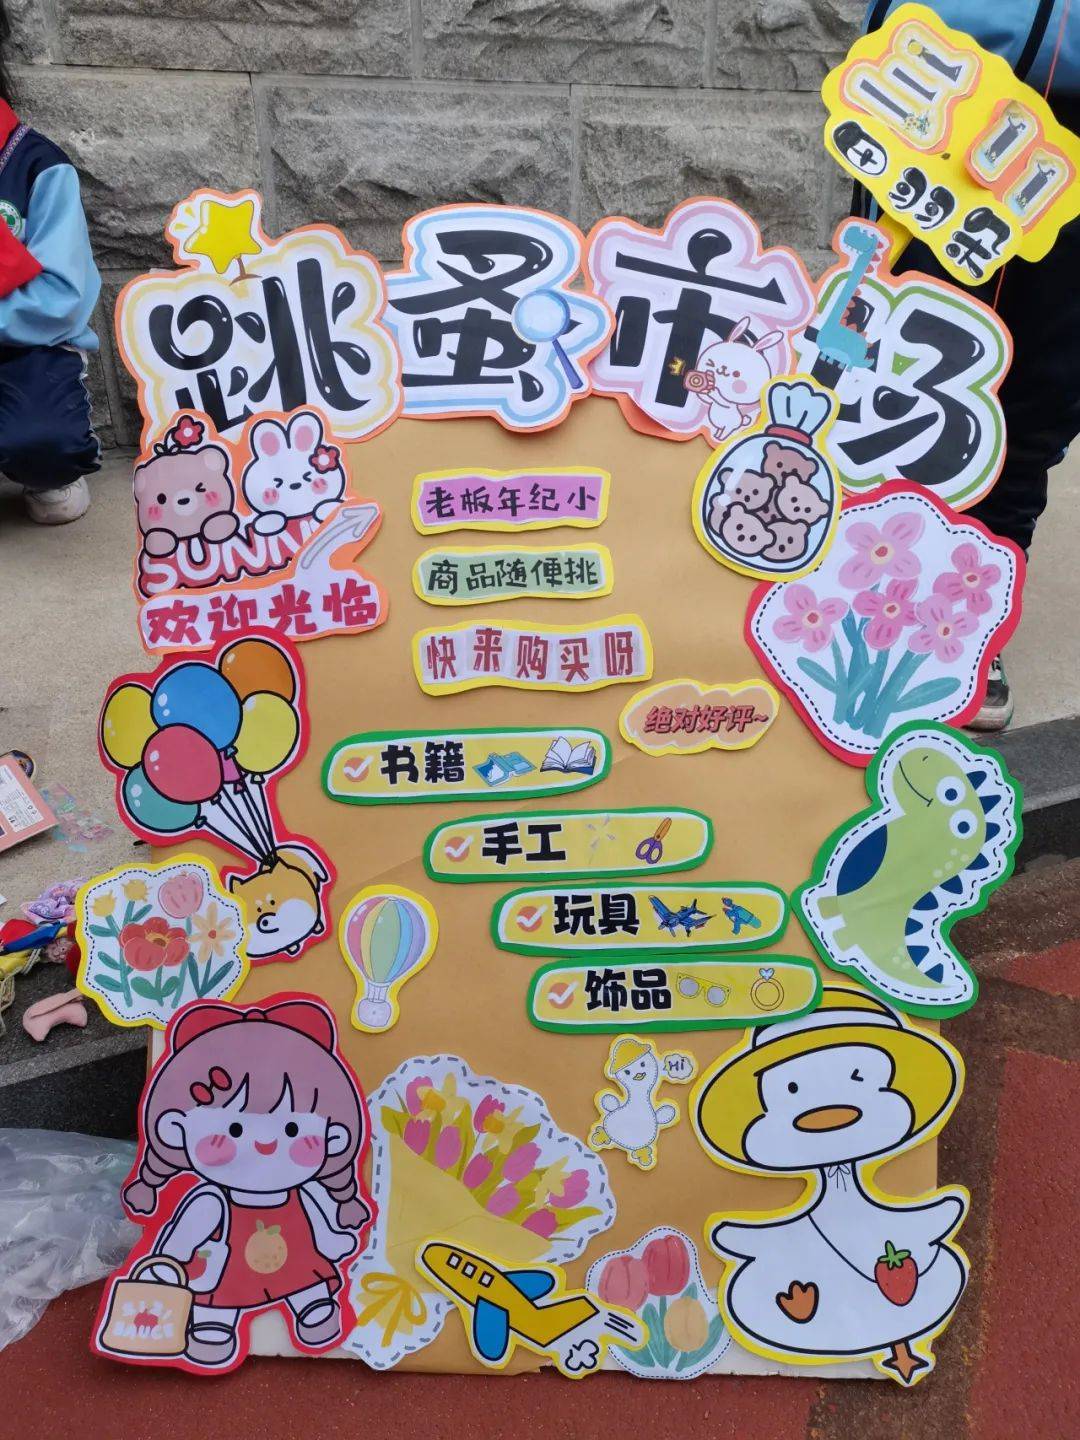 三11
田羽朵
跳蚤市场
SUNNY
欢迎光临
老板年纪小
商品随便挑
快来购买呀
绝对好评~
书籍
手工
玩具
饰品
Hi
SAUCE